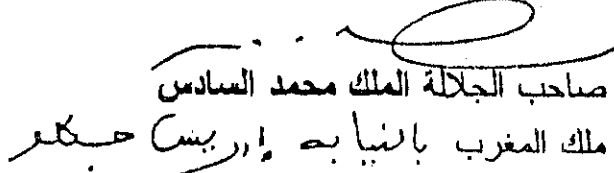 صاحب الجلالة الملك محمد السادس
ملك المغرب بالنيابه إدريس